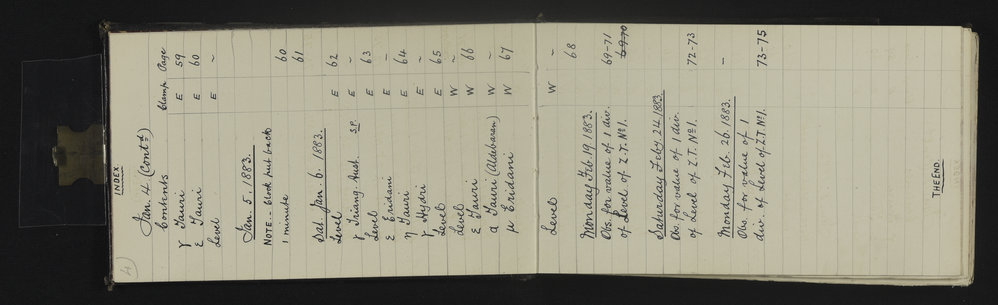 4)
INDEX
Jan. 4 (Contd)
Contents Clamp Page
γ Tauri E 59
ε Tauri E 60
Level E ~
Jan. 5. 1883.
NOTE.- Clock put back 60
1 minute 61
Sat. Jan. 6. 1883.
Level E 62
γ Triang. Aust. S.P. E ~
Level E 63
ε Eridani E ~
η Tauri E 64
γ Hydri E ~
Level E 65
Level W ~
ε Tauri W 66
α Tauri (Aldebaran) W ~
μ Eridani W 67
Level W ~
Monday Feb 19, 1883. 68
Obs. for value of 1 div. 69-71
of Level of Z.T. No 1. 69-70
Saturday Feby 24 1883.
Obs. for value of 1 div.
of Level of Z.T. No 1. 72-73
Monday Feb. 26. 1883. -
Obs. for value of 1
div. of Level of Z.T. No 1. 73-75
THE END.